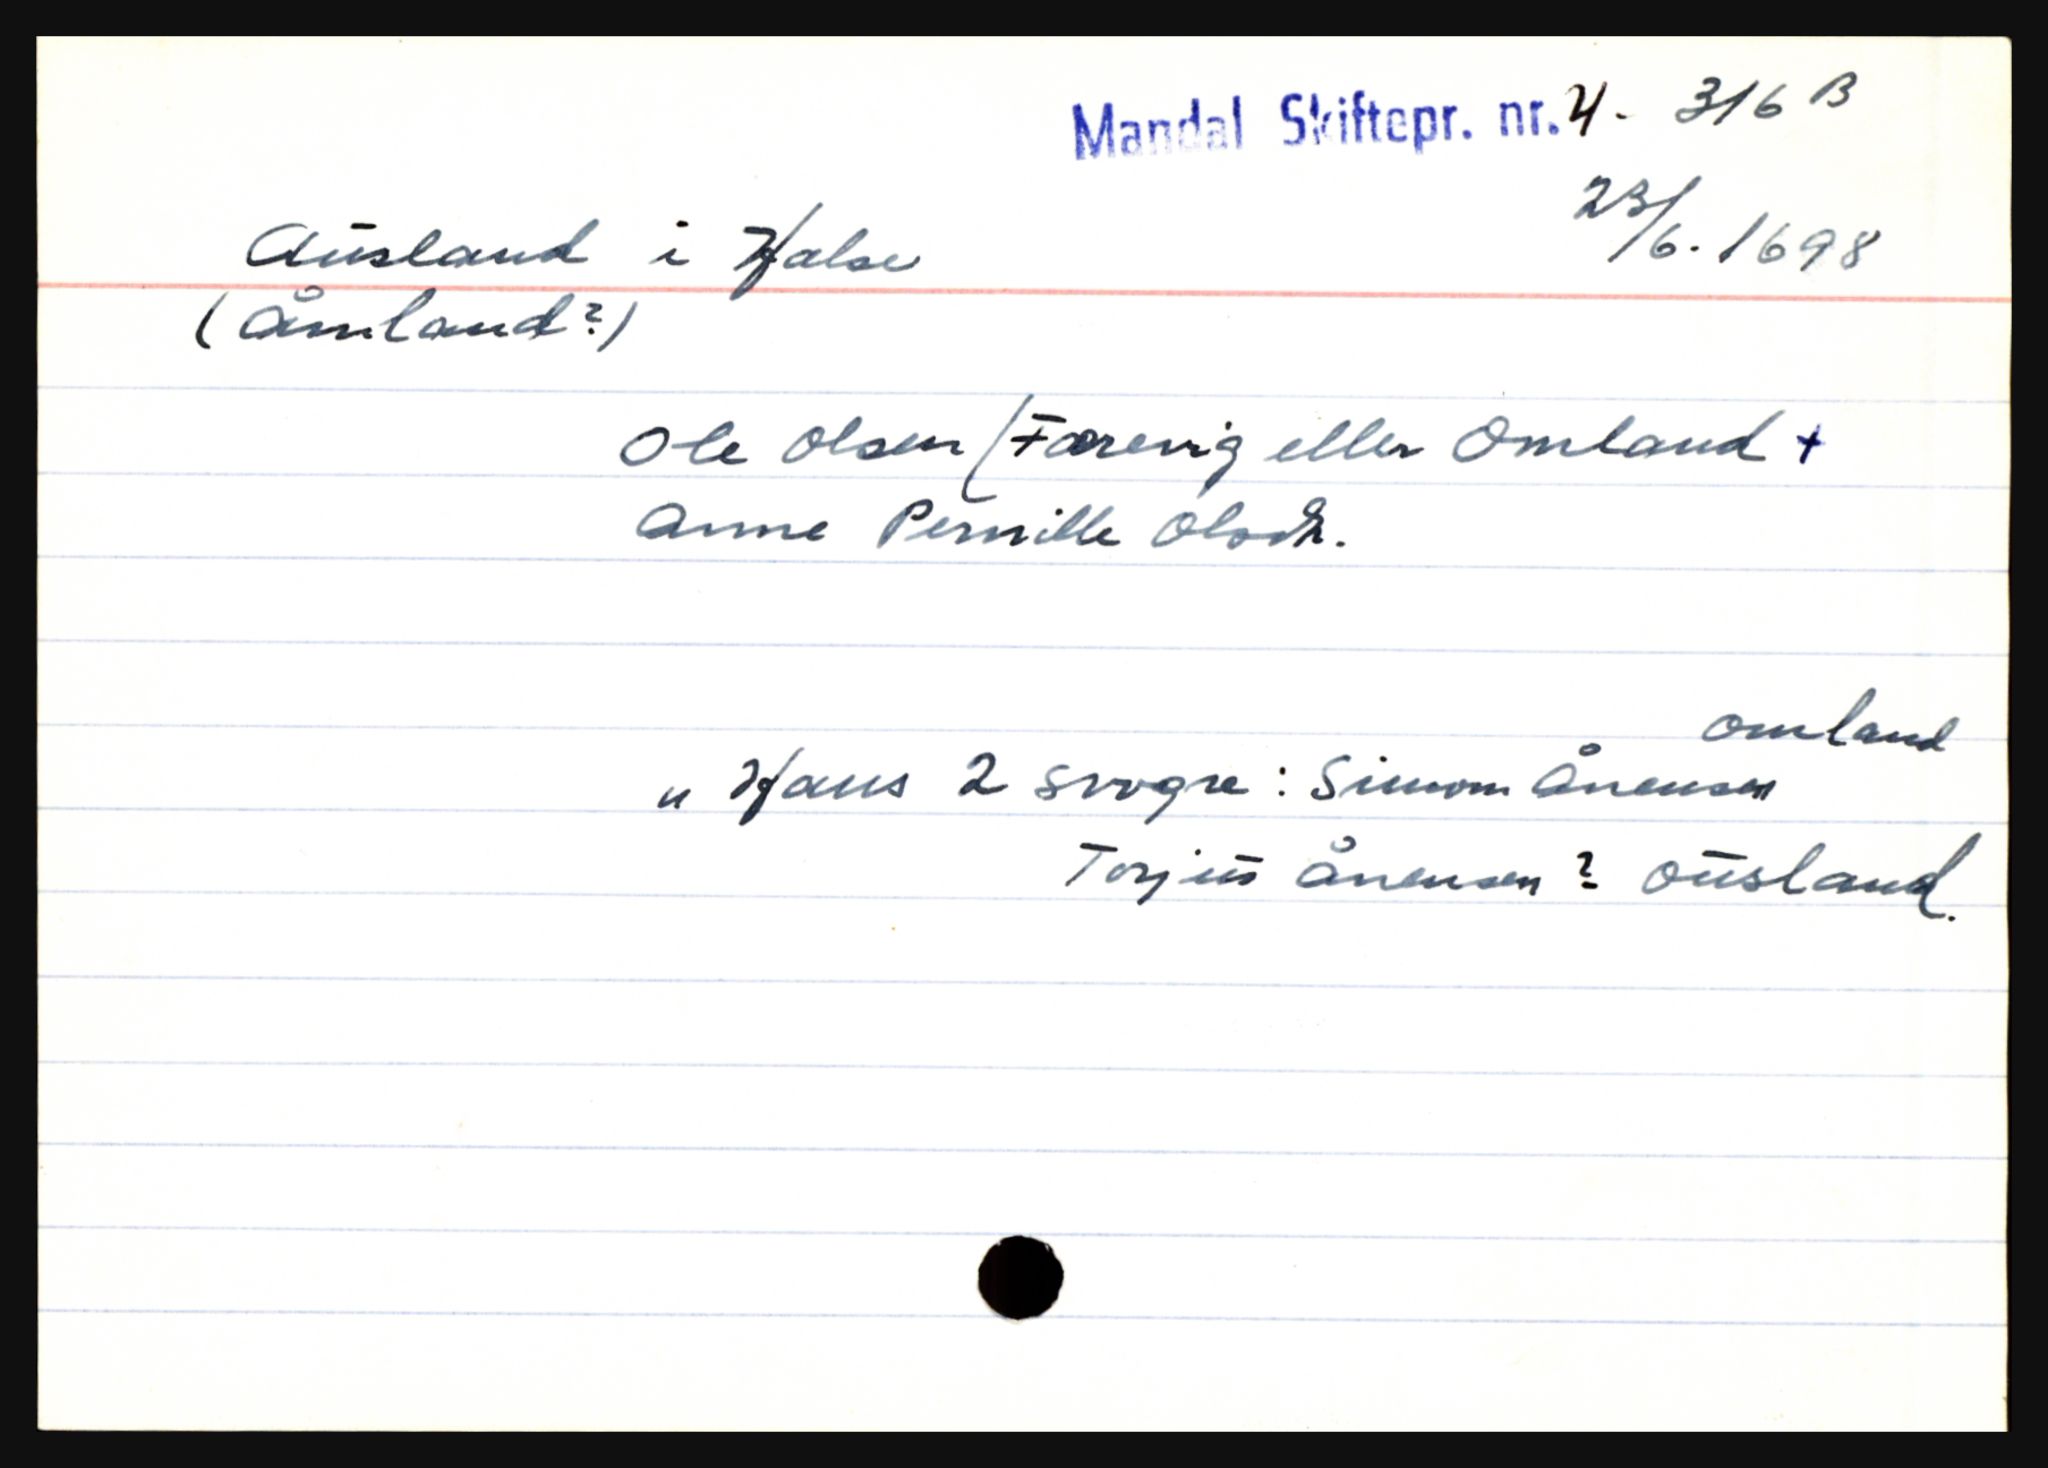 Mandal Skiftepr. nr. 4 - 316 B
23/6. 1698
Ausland i Halse
(Åmland?)
Ole Olsen / Færevig eller Omland +
Anne Pernille Olsdr.
omland
" Hans 2 svogre: Simon Ånensen
Torjus Ånensen? Ousland.